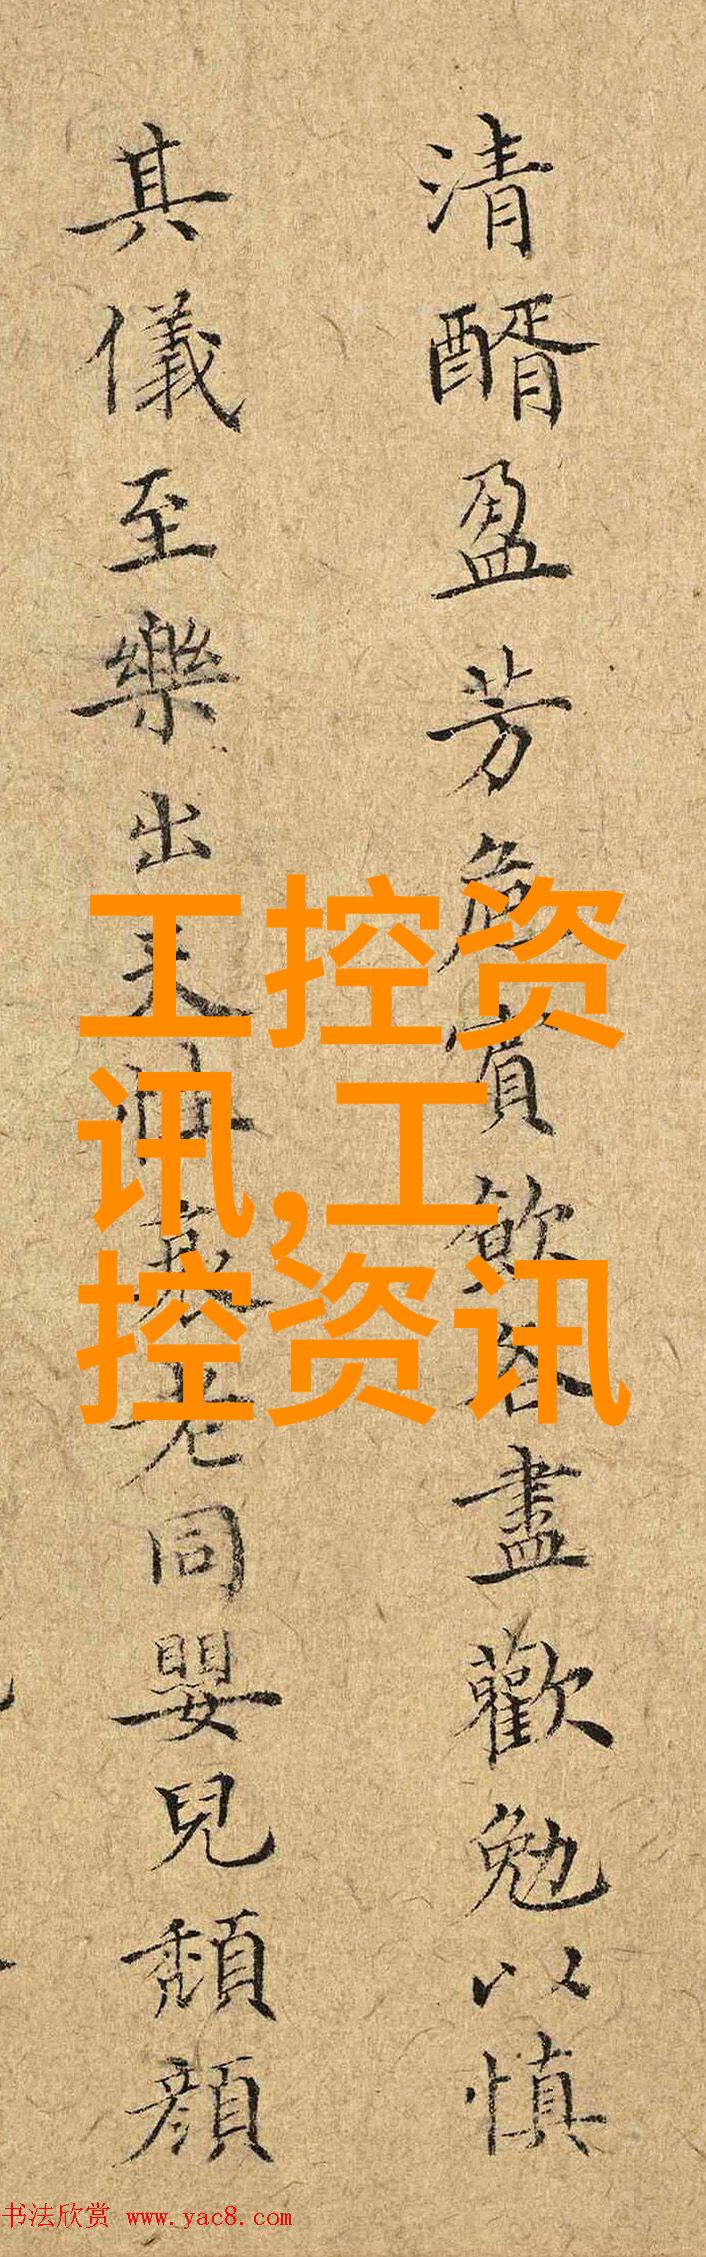 清醑盈芳卮賓飲各盡歡勉以慎
其儀至樂出天性衰老同嬰兒頹顏
工控资
讯,工
控资讯
书法欣赏 www.yac8.com